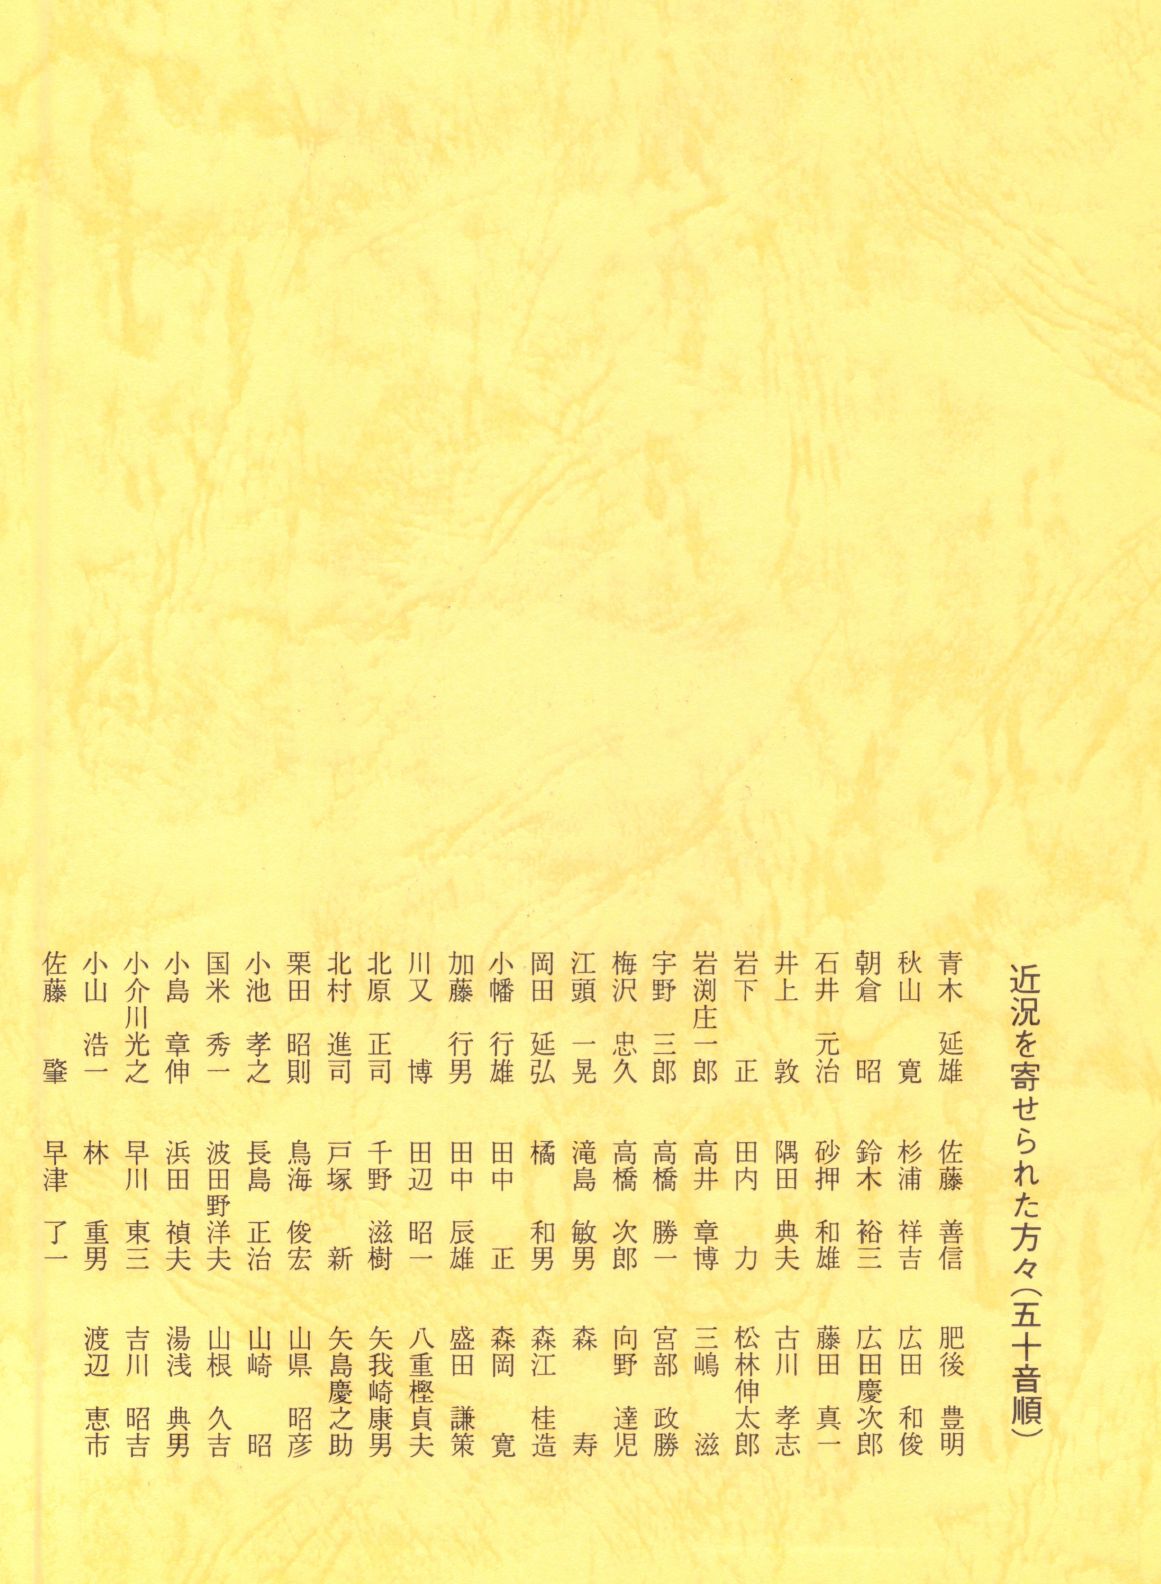 近況を寄せられた方々（五十音順）
青木　延雄
秋山　寛
朝倉　昭
石井　元治
井上　敦
岩下　正
岩渕庄一郎
宇野　三郎
梅沢　忠久
江頭　一晃
岡田　延弘
小幡　行雄
加藤　行男
川又　博
北原　正司
北村　進司
栗田　昭則
小池　孝之
国米　秀一
小島　章伸
小介川光之
小山　浩一
佐藤　肇
佐藤　善信
杉浦　祥吉
鈴木　裕三
砂押　和雄
隅田　典夫
田内　力
高井　章博
高橋　勝一
高橋　次郎
滝島　敏男
橘　和男
田中　正
田中　辰雄
田辺　昭一
千野　滋樹
戸塚　新
鳥海　俊宏
長島　正治
波田野洋夫
浜田　禎夫
早川　東三
林　重男
早津　了一
肥後　豊明
広田　和俊
広田慶次郎
藤田　真一
古川　孝志
松林伸太郎
三嶋　滋
宮部　政勝
向野　達児
森　寿
森江　桂造
森岡　寛
盛田　謙策
八重樫貞夫
矢我崎康男
矢島慶之助
山県　昭彦
山崎　昭
山根　久吉
湯浅　典男
吉川　昭吉
渡辺　恵市